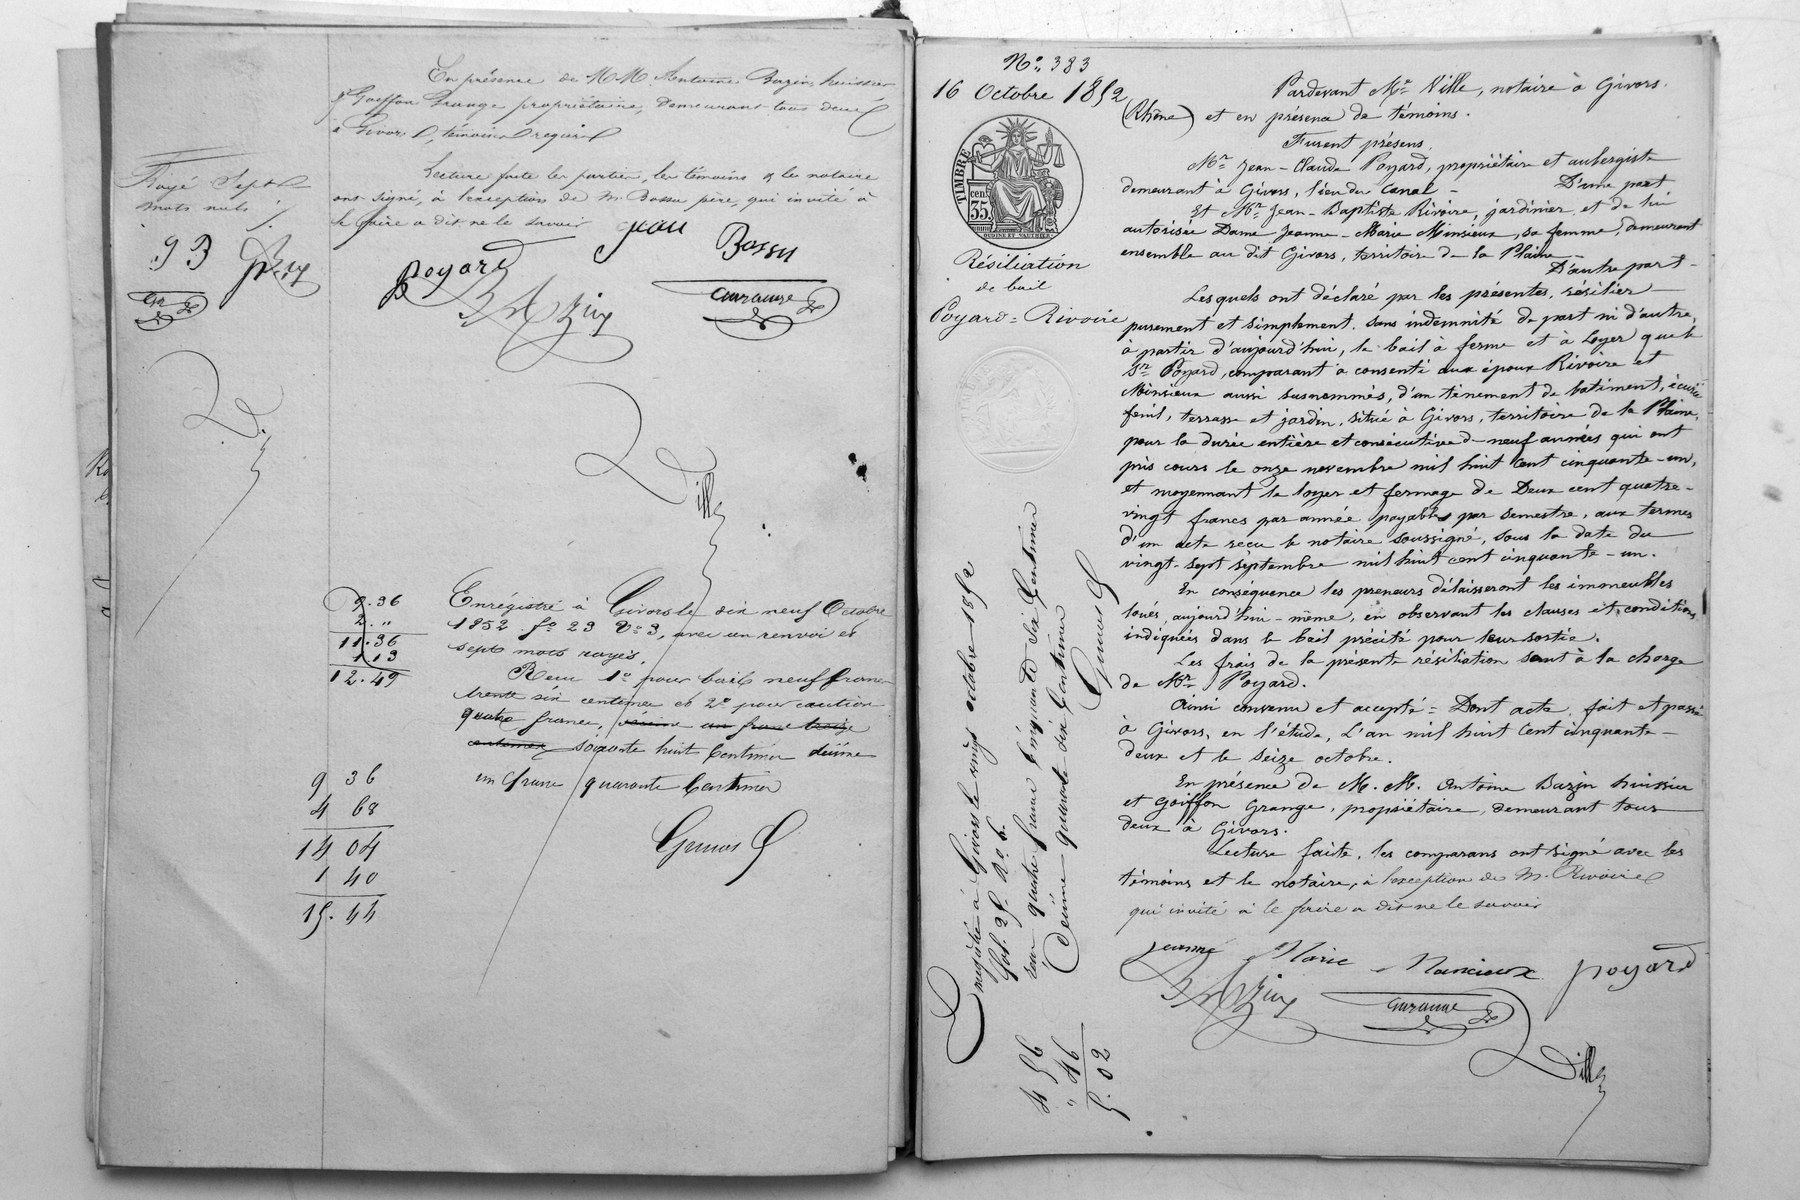 En présence de MM Antoine Bazin, huissier
& Goiffon Grange propriétaire, demeurant tous deux
à Givors, témoins requis
Lecture faite les parties, les témoins & le notaire
ont signé, à l'exception de M. Bossu père, qui invité à
le faire a dit ne le savoir
Rayé Sept
mots nuls
Jean
Bossu
Poyard
Bazin
Grange
Ville
9.36
2. "
11.36
1 13
12.49
Enrégistré à Givors le dix neuf Octobre
1852 fo 23 Vo 3, avec un renvoi et
sept mots rayés.
Reçu 1o pour bail neuf francs
trente six centimes et 2o pour caution
quatre francs, un franc treize
centimes soixante huit Centimes décime
un franc quarante Centimes
9 36
4 68
14 04
1 40
15.44
No 383
16 Octobre 1852
TIMBRE
35 cen.
Résiliation
de bail
Poyard = Rivoire
Pardevant Me Ville, notaire à Givors
(Rhône) et en présence de témoins.
Furent présens
Mr Jean-Claude Poyard, propriétaire et aubergiste
demeurant à Givors, lieu du Canal - D'une part,
Et Mr Jean-Baptiste Rivoire, jardinier, et de lui
autorisée Dame Jeanne-Marie Minsieux, sa femme, demeurant
ensemble au dit Givors, territoire de la Plaine
D'autre part -
Lesquels ont déclaré par les présentes, résilier
purement et simplement, sans indemnité de part ni d'autre,
à partir d'aujourd'hui, le bail à ferme et à loyer que le
Sr Poyard, comparant a consenti aux époux Rivoire et
Minsieux aussi susnommés, d'un tènement de batiment, écurie
fenil, terrasse et jardin, situé à Givors, territoire de la Plaine,
pour la durée entière et consécutive de neuf années qui ont
pris cours le onze novembre mil huit cent cinquante-un,
et moyennant le loyer et fermage de Deux cent quatre-
vingt francs par année payable par semestre, aux termes
d'un acte reçu le notaire soussigné, sous la date du
vingt-sept septembre mil huit cent cinquante-un.
En conséquence les preneurs délaisseront les immeubles
loués, aujourd'hui-même, en observant les clauses et conditions
indiquées dans le bail précité pour leur sortie.
Les frais de la présente résiliation sont à la charge
de Mr Poyard.
Ainsi convenu et accepté = Dont acte, fait et passé
à Givors, en l'étude, L'an mil huit cent cinquante-
deux et le seize octobre.
En présence de M. M. Antoine Bazin huissier
et Goiffon Grange, propriétaire, demeurant tous
deux à Givors.
Lecture faite, les comparans ont signé avec les
témoins et le notaire, à l'exception de M. Rivoire
qui invité à le faire a dit ne le savoir
jeanne Marie Mancieux poyard
Bazin
Grange
Ville
Enrégistré à Givors le vingt octobre 1852
fol. 25 Vo 6.
reçu quatre francs Cinquante six Centimes
Décime quarante six Centimes
4 56
" 46
5.02